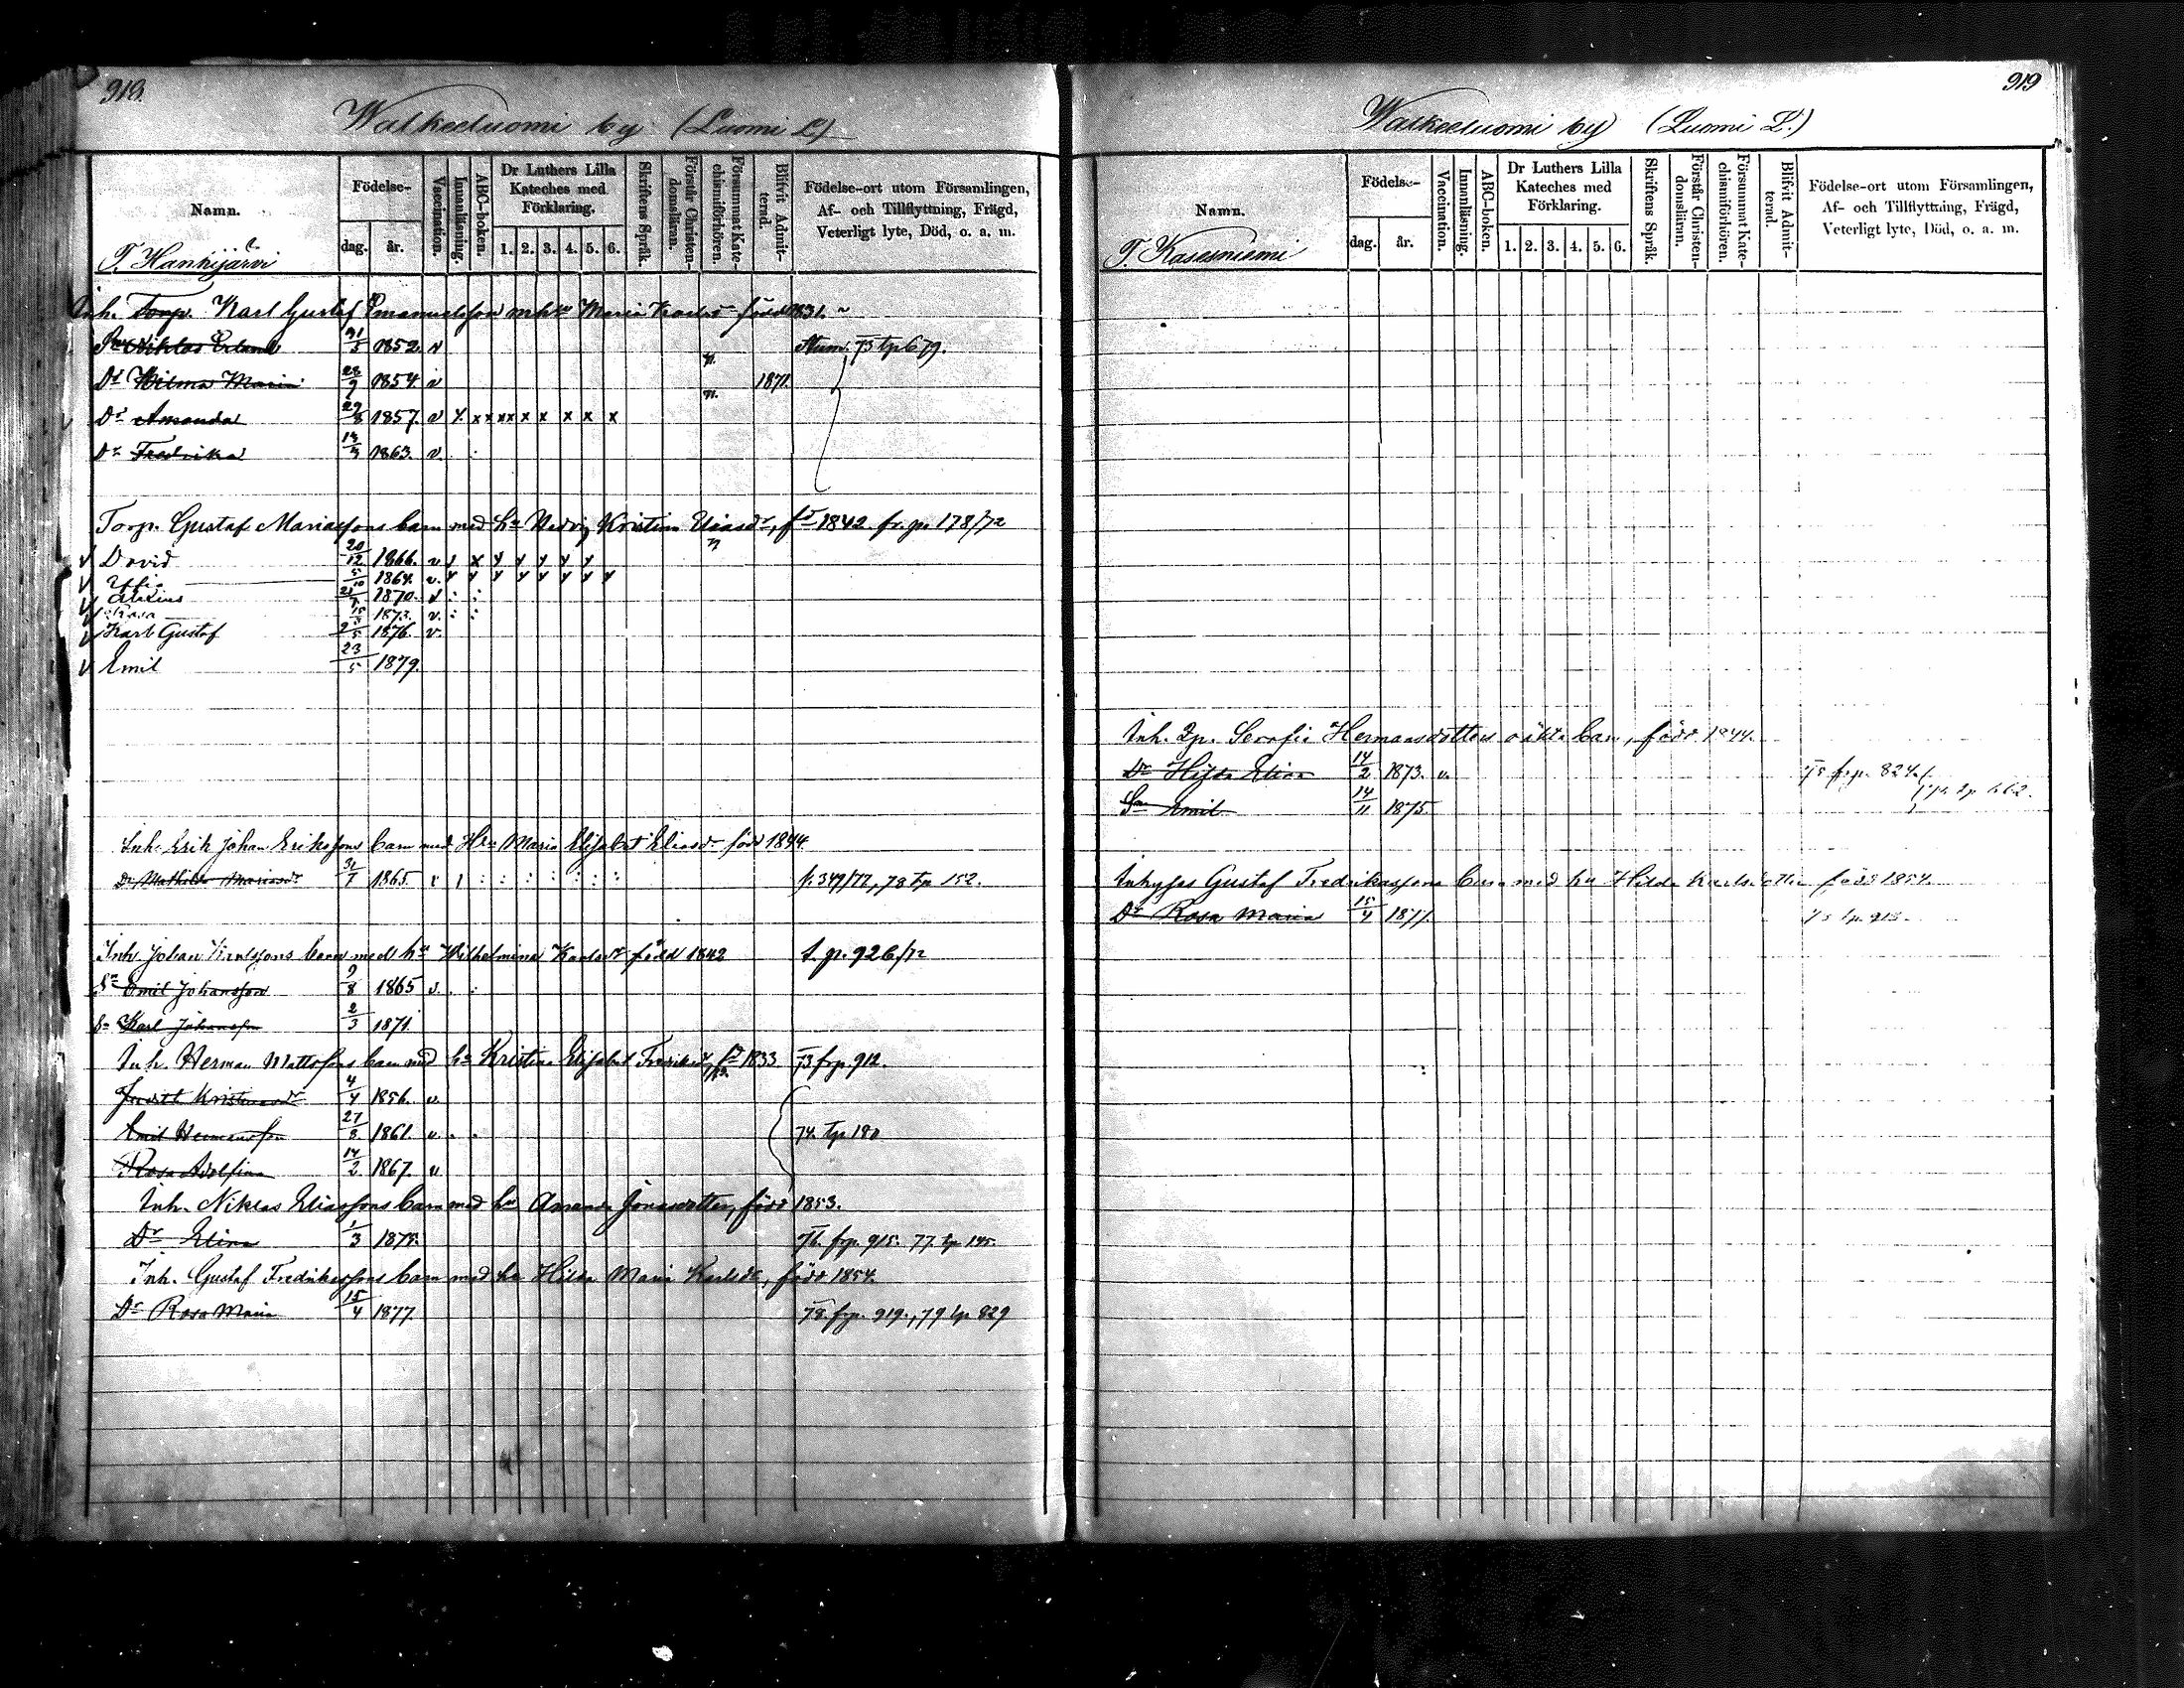 918.
Walkeeluomi by (Luomi L.)
Namn.
Födelse-
dag.
år.
Vaccination.
Innanläsning.
ABC-boken.
Dr Luthers Lilla Kateches med Förklaring.
1. 2. 3. 4. 5. 6.
Skriftens Språk.
Förstår Christendomsläran.
Försummat Katechismiförhören.
Blifvit Admitterad.
Födelse-ort utom Församlingen,
Af- och Tillflyttning, Frägd,
Veterligt lyte, Död, o. a. m.
T. Hankijärvi
Inh. Torp. Karl Gustaf Emanuelsson Maria född 1831.
Niklas Erland 21/5 1852 v 73 tp 679.
Dr Wilma Maria 28/9 1854 v n. 1871.
Dr Amanda 29/8 1857. v x x x x x x x x x
Dr Fredrika 1863. v.
Torp. Gustaf Mariassons barn med hu Hedvig Kristina Eliasdr, fd 1842 fr. p. 178/72
David 20/12 1866. v
5/10 1864. v.
1870. v
Rosa 1873. v.
Karl Gustaf 1876. v.
Emil 23/5 1879.
Inh. Erik Johan Erikssons barn med Hu Maria Elisabet Eliasdr född 1844
Dr Mathilda Mariasdr 31/1 1865. f. 349/77, 78 tp 152.
Inh. Johan Karlssons barn med hu Wilhelmina Karlsdr född 1842 f. p. 926/72
Sn Emil Johansson 9/8 1865 v.
Sn Karl Johansson 2/3 1871.
Inh. Herman Mattssons barn med hu Kristina Elisabet fd 1833 73 frp. 912.
Judith Kristinasdr 4/4 1856. v.
Emil Hermansson 27/8 1861. v. 74. tp 180
Rosa Adolfina 14/2 1867. v
Inh. Niklas Eliassons barn med hu Amanda Jonasdotter, född 1853.
Dr Elina 1/3 1875. 76. frp. 915. 77. tp 145.
Inh. Gustaf Fredrikassons barn med hu Hilda Maria Karlsdr, född 1854.
Dr Rosa Maria 15/4 1877. 78. frp. 919., 79 tp 829
919
Walkeeluomi by (Luomi L.)
Namn.
Födelse-
dag.
år.
Vaccination.
Innanläsning.
ABC-boken.
Dr Luthers Lilla Kateches med Förklaring.
1. 2. 3. 4. 5. 6.
Skriftens Språk.
Förstår Christendomsläran.
Försummat Katechismiförhören.
Blifvit Admitterad.
Födelse-ort utom Församlingen,
Af- och Tillflyttning, Frägd,
Veterligt lyte, Död, o. a. m.
T. Kasesniemi
Inh. Qp. Serafia Hermansdotters oäkta barn, född 1844.
Dr Hilda Elina 14/2 1873. v. 75 frp. 824.
Sn Emil 14/11 1875.
Inhyses Gustaf Fredrikassons barn med hu Hilda Karlsdotter född 1854.
Dr Rosa Maria 15/4 1877. 78 tp. 918.